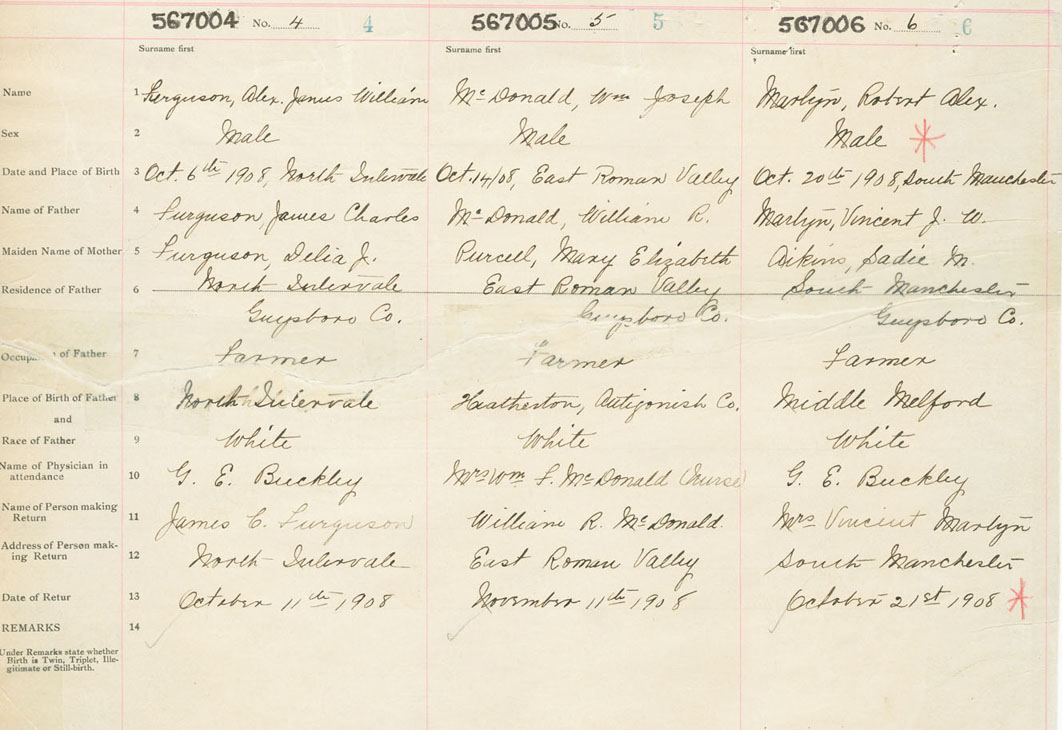 567004 No. 4 4 567005 No. 5 5 567006 No. 6 6
Surname first Surname first Surname first
Name 1 Ferguson, Alex. James William McDonald, Wm Joseph Martyn, Robert Alex.
Sex 2 Male Male Male
Date and Place of Birth 3 Oct. 6th 1908, North Intervale Oct. 14/08, East Roman Valley Oct. 20th 1908, South Manchester
Name of Father 4 Furguson, James Charles McDonald, William R. Martyn, Vincent J. W.
Maiden Name of Mother 5 Furguson, Delia J. Purcell, Mary Elizabeth Aikins, Sadie M.
Residence of Father 6 North Intervale East Roman Valley South Manchester
Guysboro Co. Guysboro Co. Guysboro Co.
of Father 7 Farmer Farmer Farmer
Place of Birth of Father 8 North Intervale Heatherton, Antigonish Co. Middle Melford
and
Race of Father 9 White White White
Name of Physician in
attendance 10 G. E. Buckley Mrs Wm F. McDonald (Nurse) G. E. Buckley
Name of Person making
Return 11 James C. Furguson William R. McDonald. Mrs Vincent Martyn
Address of Person mak-
ing Return 12 North Intervale East Roman Valley South Manchester
Date of Retur 13 October 11th 1908 November 11th 1908 October 21st 1908
REMARKS 14
Under Remarks state whether
Birth is Twin, Triplet, Ille-
gitimate or Still-birth.